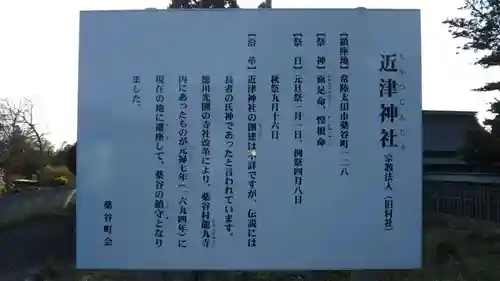 近津神社 宗教法人(旧村社)
ちかつじんじゃ
【鎮座地】常陸太田市薬谷町一二八
【祭 神】面足命、惶根命
【祭 日】元旦祭一月一日、例祭四月八日
秋祭九月十六日
【沿 革】近津神社の創建は不詳ですが、伝説には
長者の氏神であったと言われています。
徳川光圀の寺社改革により、薬谷村龍九寺
内にあったものが元禄七年(一六九四年)に
現在の地に遷座して、薬谷の鎮守となり
ました。
薬谷町会